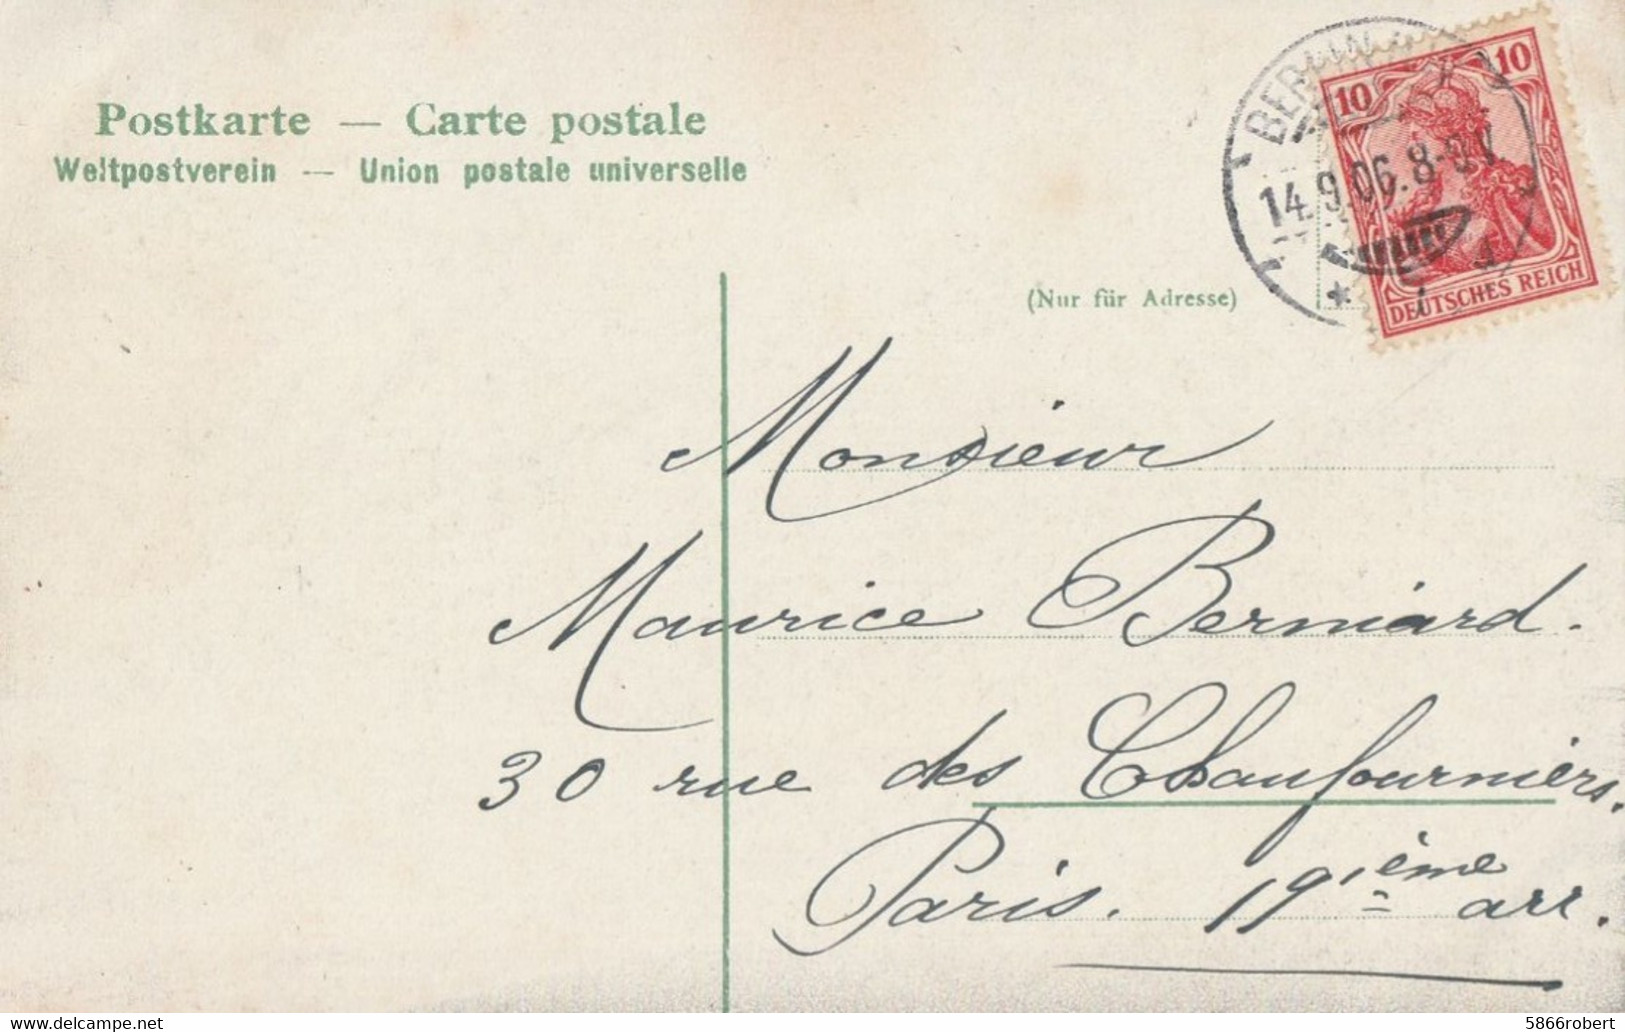 Postkarte — Carte postale
Weltpostverein — Union postale universelle
BERLIN
14.9.06.8-9V
10
10
DEUTSCHES REICH
(Nur für Adresse)
Monsieur
Maurice Berniard.
30 rue des Chaufourniers.
Paris. 19ième arr.
delcampe.net
5866robert